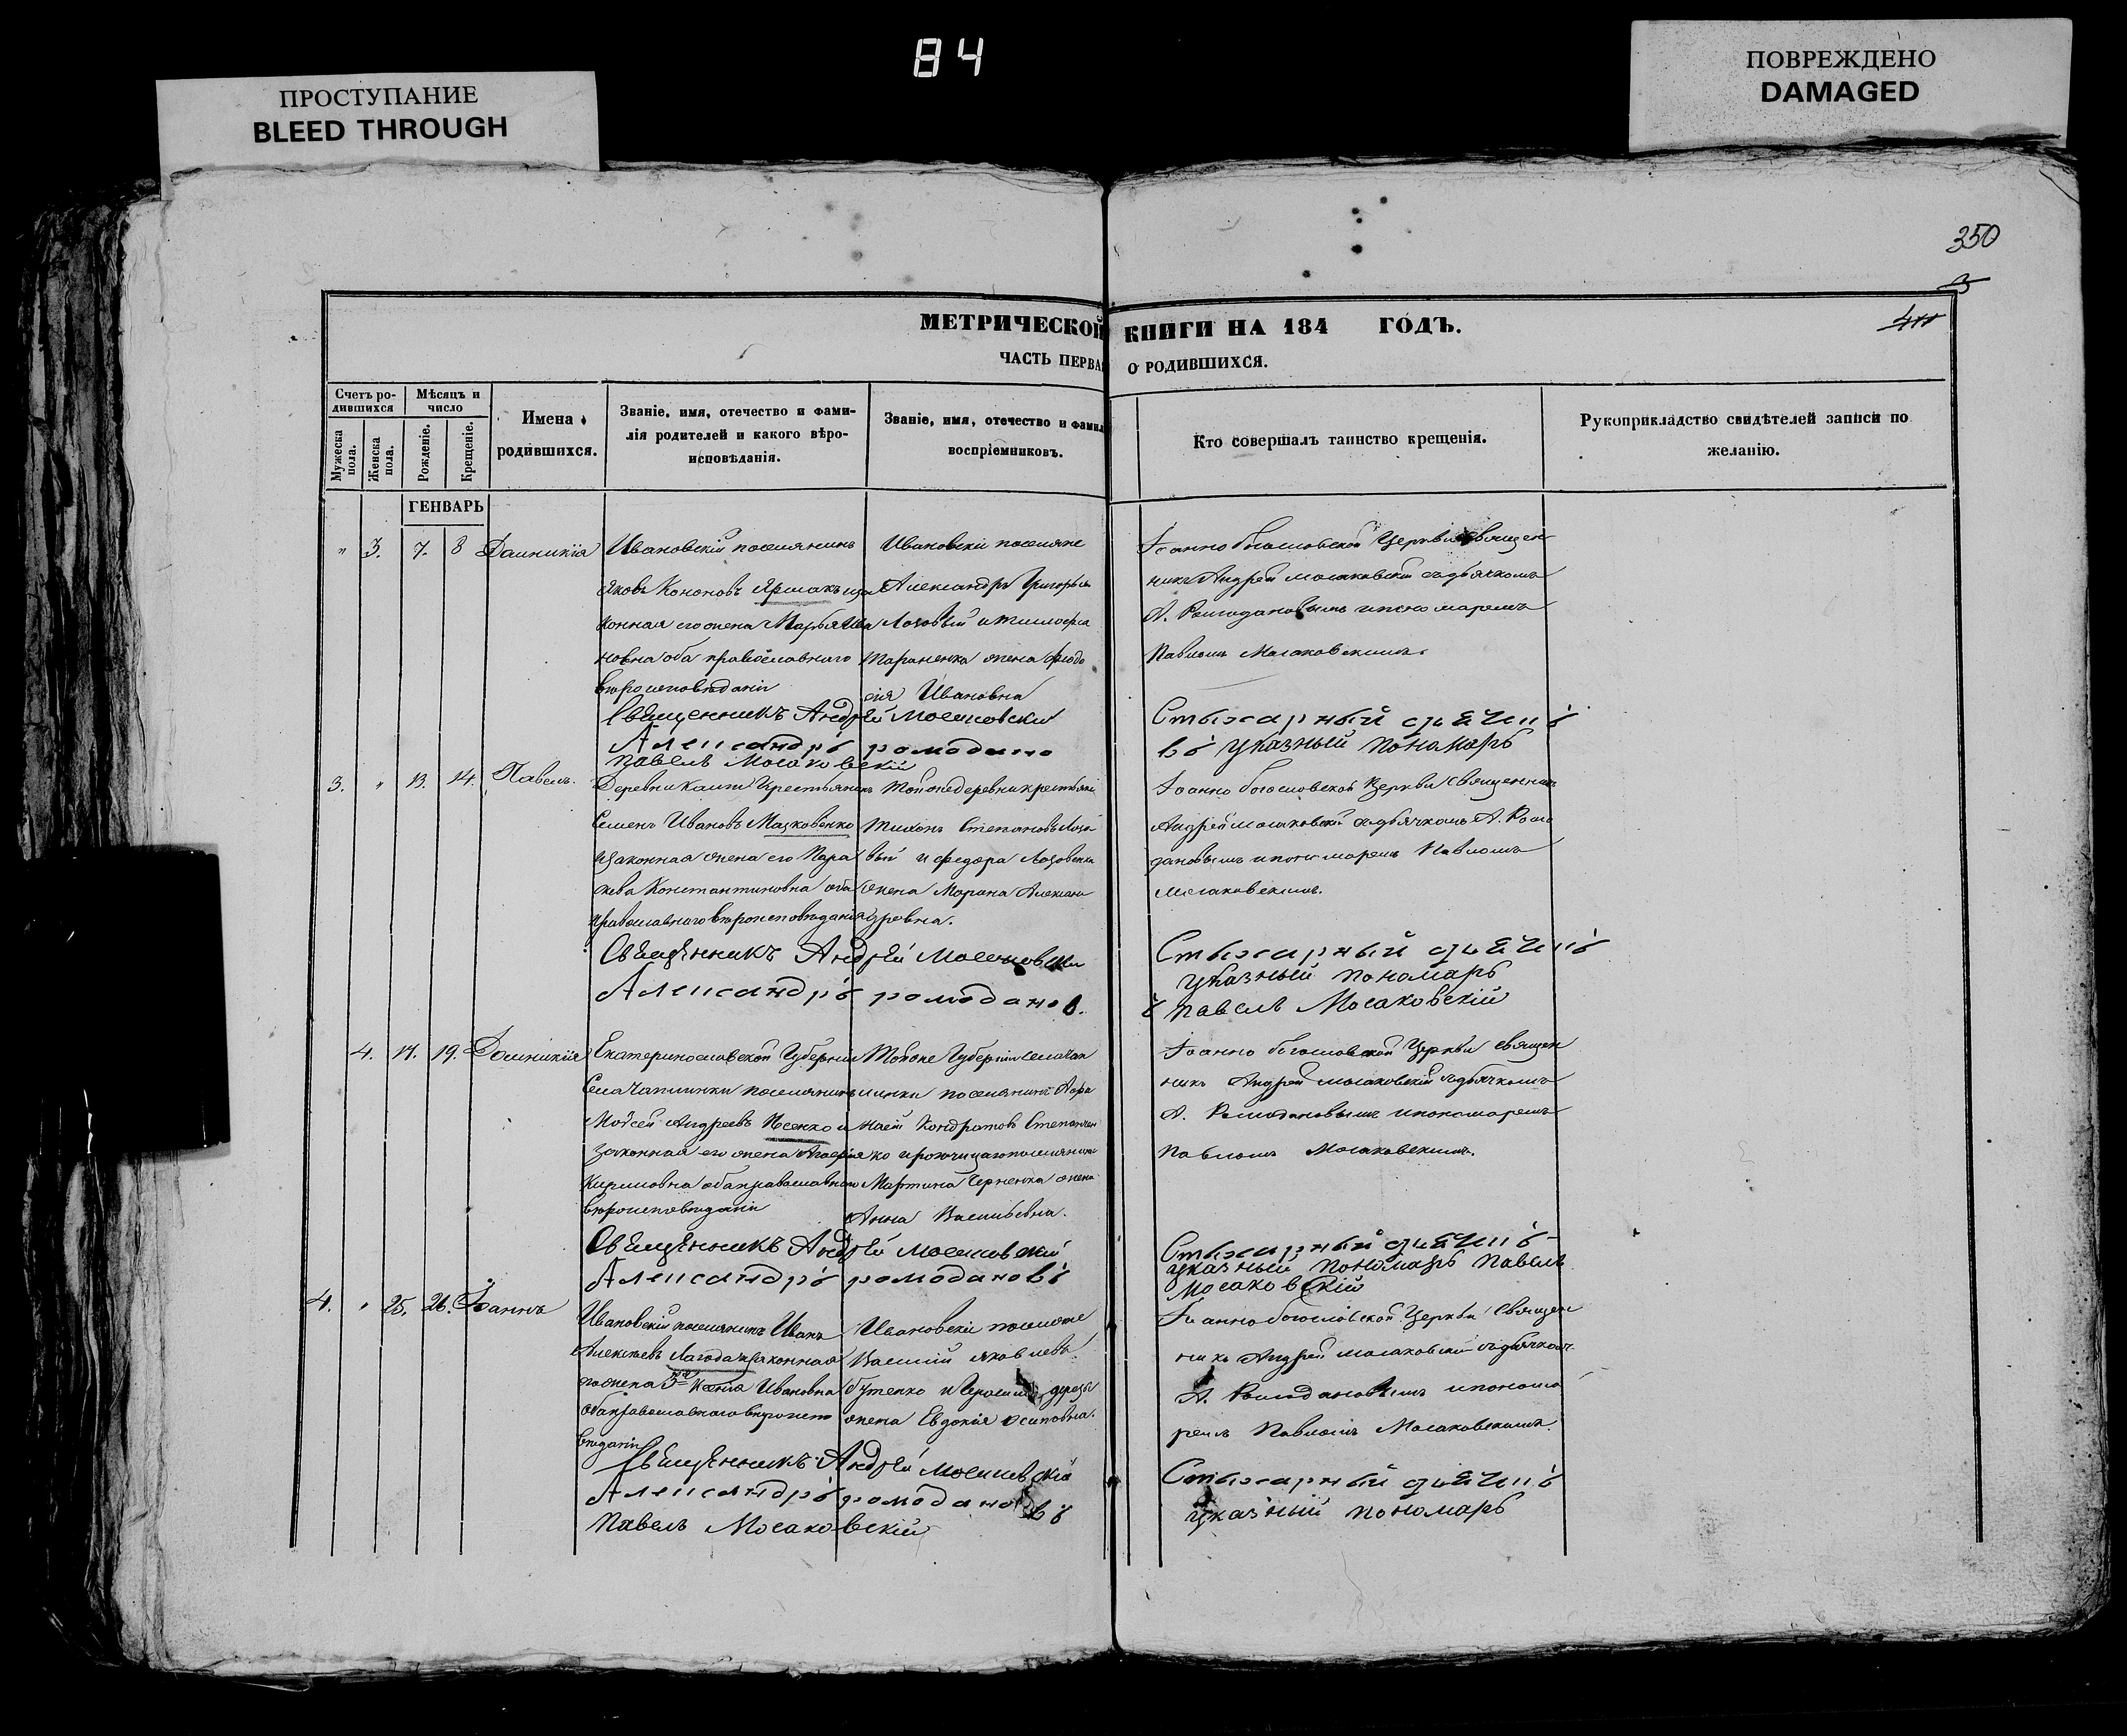 84
ПРОСТУПАНИЕ
BLEED THROUGH
ПОВРЕЖДЕНО
DAMAGED
350
3
МЕТРИЧЕСКОЙ КНИГИ НА 184 ГОДЪ.
ЧАСТЬ ПЕРВАЯ О РОДИВШИХСЯ.
Счетъ ро-
дившихся
Мужеска пола.
Женска пола.
Мѣсяцъ и
число
Рожденіе.
Крещеніе.
Имена
родившихся.
Званіе, имя, отечество и фами-
лія родителей и какого вѣро-
исповѣданія.
Званіе, имя, отечество и фамил
воспріемниковъ.
Кто совершалъ таинство крещенія.
Рукоприкладство свидѣтелей записи по
желанію.
ГЕНВАРЬ
" 3. 7. 8 Домникія
Ивановскій поселянинъ
Яковъ Кононовъ Ярмакъ иза
конная его жена Марья Ива
новна оба православного
вѣроисповѣданія
Ивановскіе поселяне
Александръ Григорьев
Лозовый и Тимофея
Тараненка жена Феодо
сія Ивановна
Іоанно Богословской Церкви Священ
никъ Андрей Мосаковскій съ дьячкомъ
А. Ромодановымъ и пономаремъ
Павломъ Мосаковскимъ.
Священникъ Андрей Мосаковскій
Александръ Ромодано
Стихарный дьячекъ
въ указный пономарь
Павелъ Мосаковскій
3. " 13. 14. Павелъ.
Деревни Крестьянинъ
Семенъ Ивановъ Мазковенко
изаконная жена его Пара
кева Константиновна оба
православного вѣроисповѣданія
Той же деревни крестьяне
Тихонъ Степановъ Лозо
вый и Федора Лозовенка
жена Марина Алексан
дровна.
Іоанно Богословской Церкви Священникъ
Андрей Мосаковскій съ дьячкомъ А. Ромо
дановымъ и пономаремъ Павломъ
Мосаковскимъ.
Священникъ Андрей Мосаковскій
Александръ Ромоданов.
Стихарный дьячекъ
указный пономарь
Павелъ Мосаковскій
4. 17. 19. Домникія
Екатеринославской Губерніи
Села Чаплинки поселянинъ
Мойсей Андреевъ Исенко и
законная его жена
Кириловна оба православного
вѣроисповѣданія
Той же Губерніи села Чап
линки поселянинъ
Кондратовъ Степанчен
ко
Мартина Черненка жена
Анна Васильевна.
Іоанно Богословской Церкви Священ
никъ Андрей Мосаковскій съ дьячкомъ
А. Ромодановымъ и пономаремъ
Павломъ Мосаковскимъ.
Священникъ Андрей Мосаковскій
Александръ Ромодановъ
Стихарный дьячекъ
указный пономарь Павелъ
Мосаковскій
4. " 25. 26. Іоаннъ
Ивановскій поселянинъ Иванъ
Алексѣевъ Лагода изаконная
его жена Ксенія Ивановна
оба православного вѣроиспо
вѣданія
Ивановскіе поселяне
Василій Яковлевъ
Бутенко и
жена Евдокія Осиповна.
Іоанно Богословской Церкви Священ
никъ Андрей Мосаковскій съ дьячком
А. Ромодановымъ и понома
ремъ Павломъ Мосаковскимъ.
Священникъ Андрей Мосаковскій
Александръ Ромодановъ
Павелъ Мосаковскій
Стихарный дьячекъ
указный пономарь